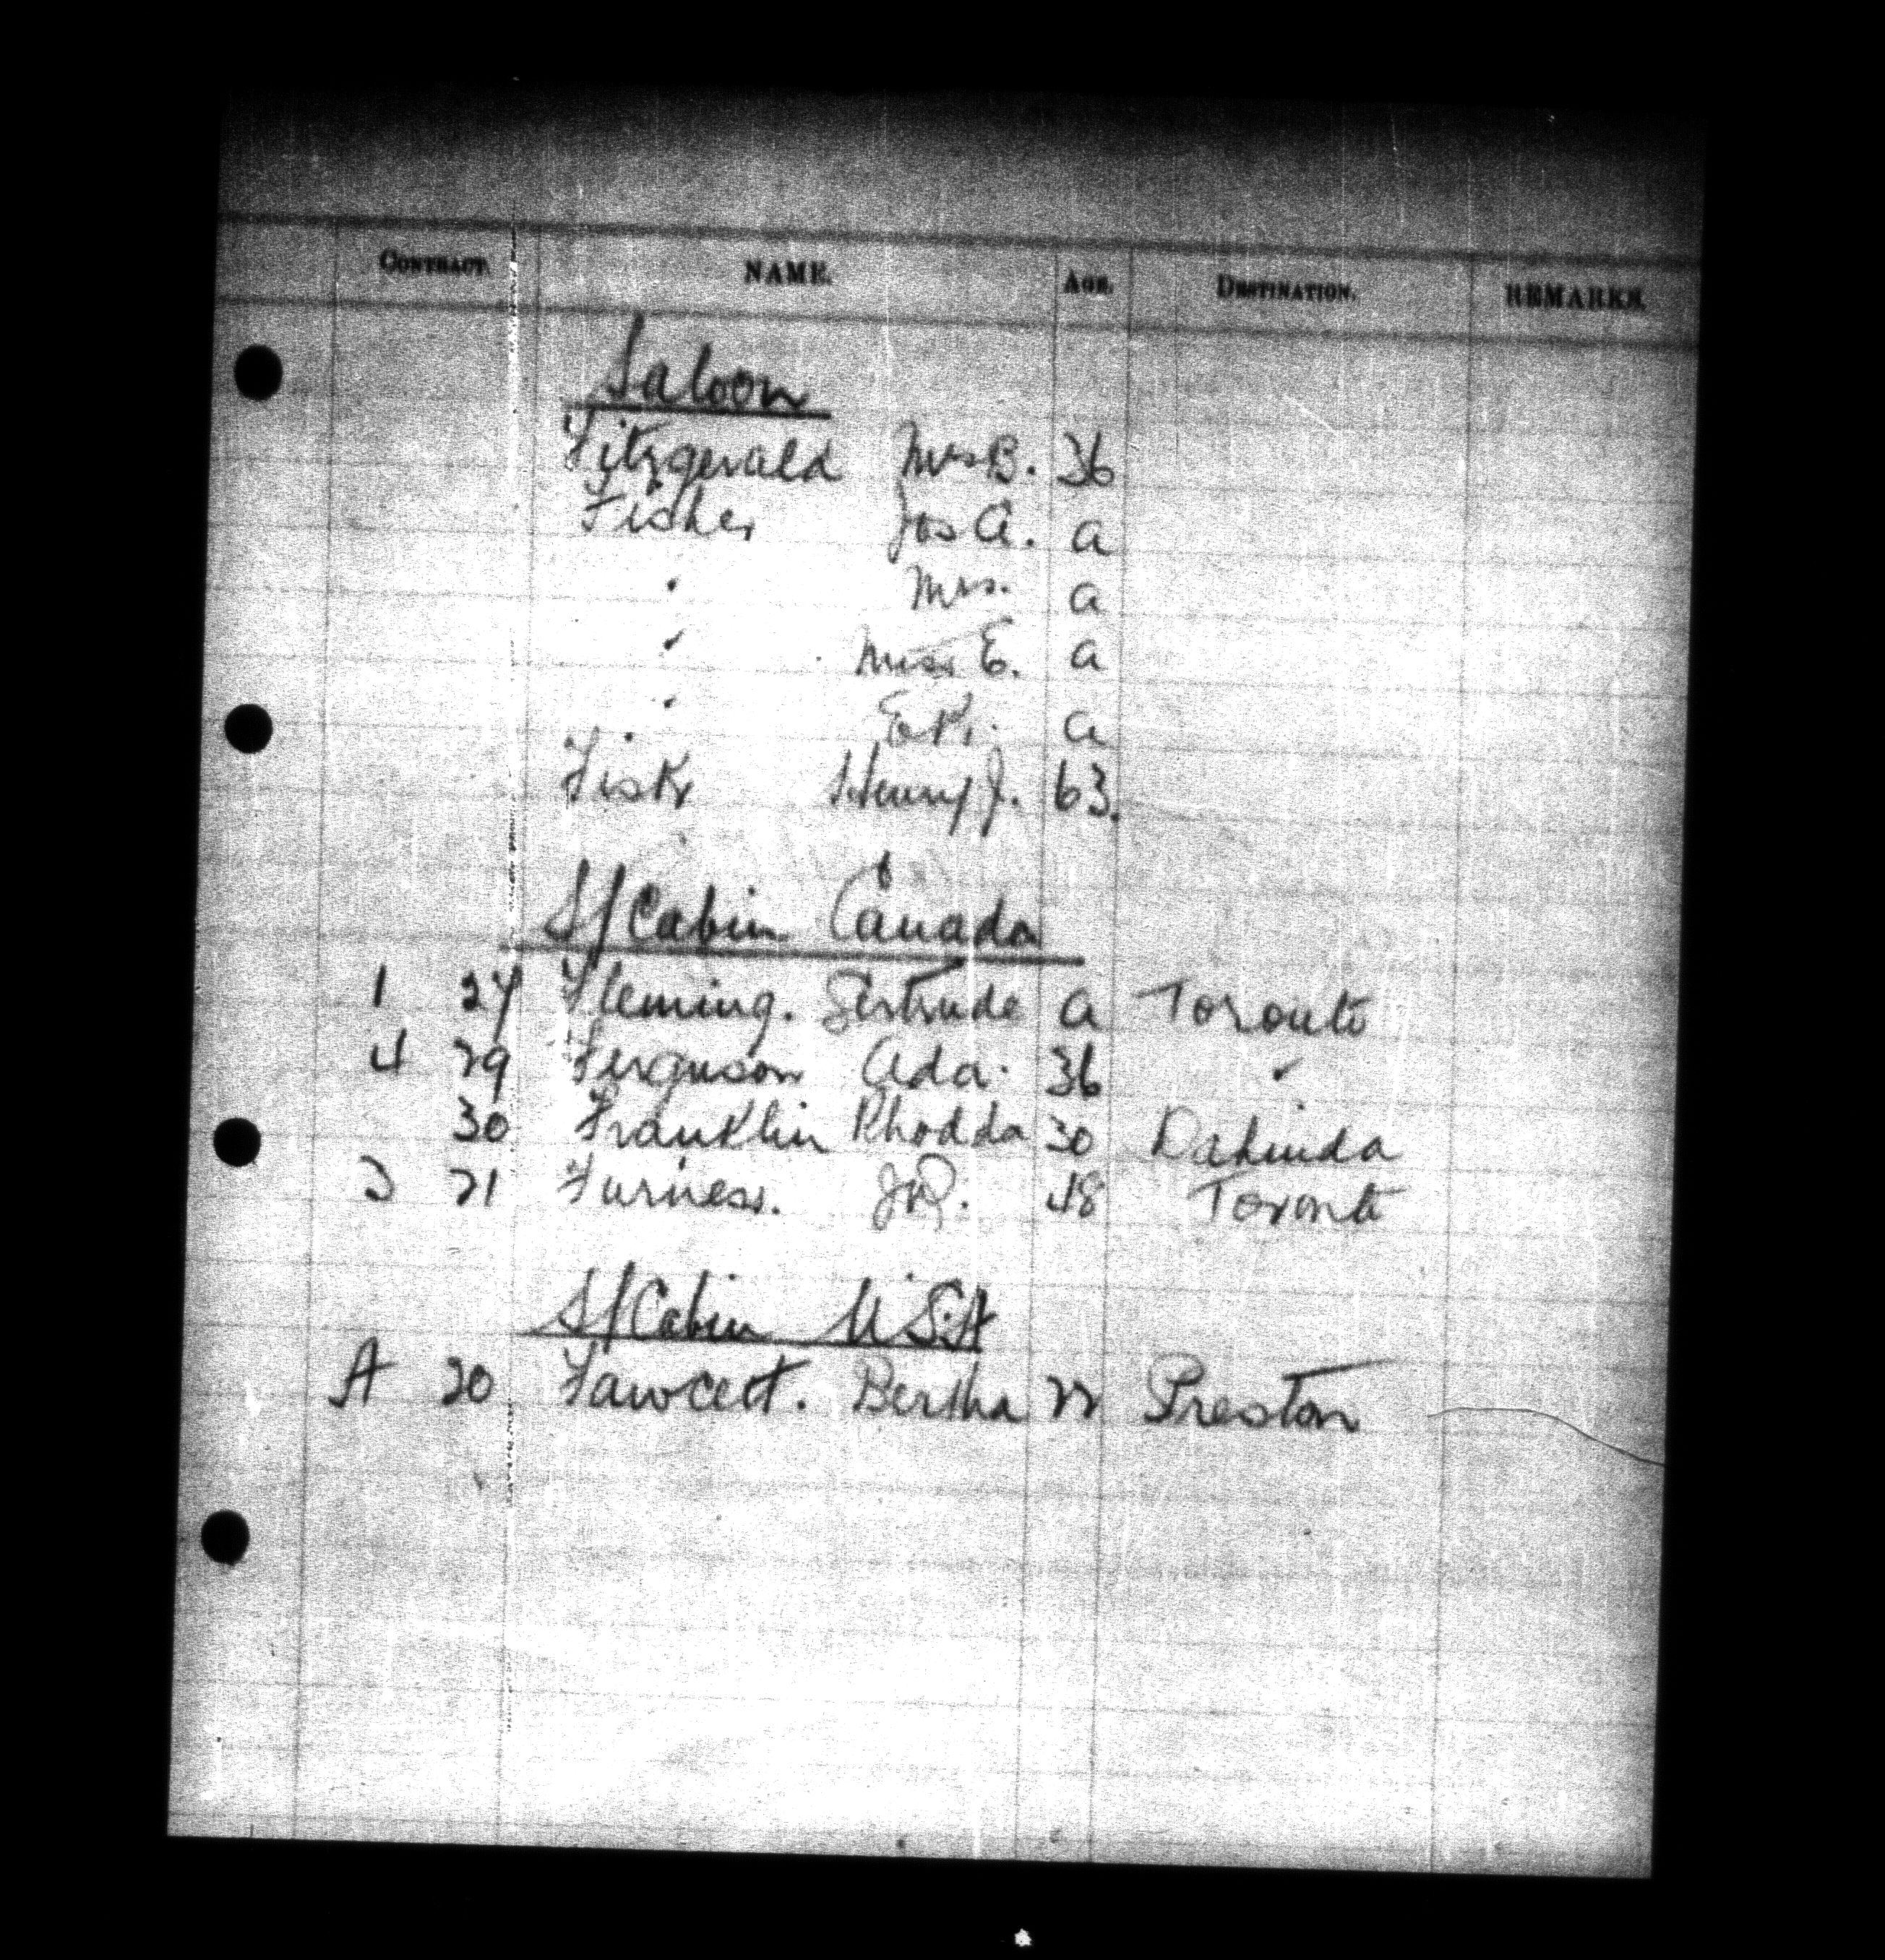 CONTRACT. NAME. AGE. DESTINATION. REMARKS.
Saloon
Fitzgerald Mrs B. 36
Fisher Jos A. a
" Mrs. a
" Miss E. a
" a
Fisk Henry J. 63.
S/Cabin Canada
1 27 Fleming. Gertrude a Toronto
4 29 Ferguson Ada. 36 "
30 Franklin Rhodda 30 Dahinda
3 21 Furness. 48 Toronto
S/Cabin U.S.A
A 20 Fawcett. Bertha 22 Preston